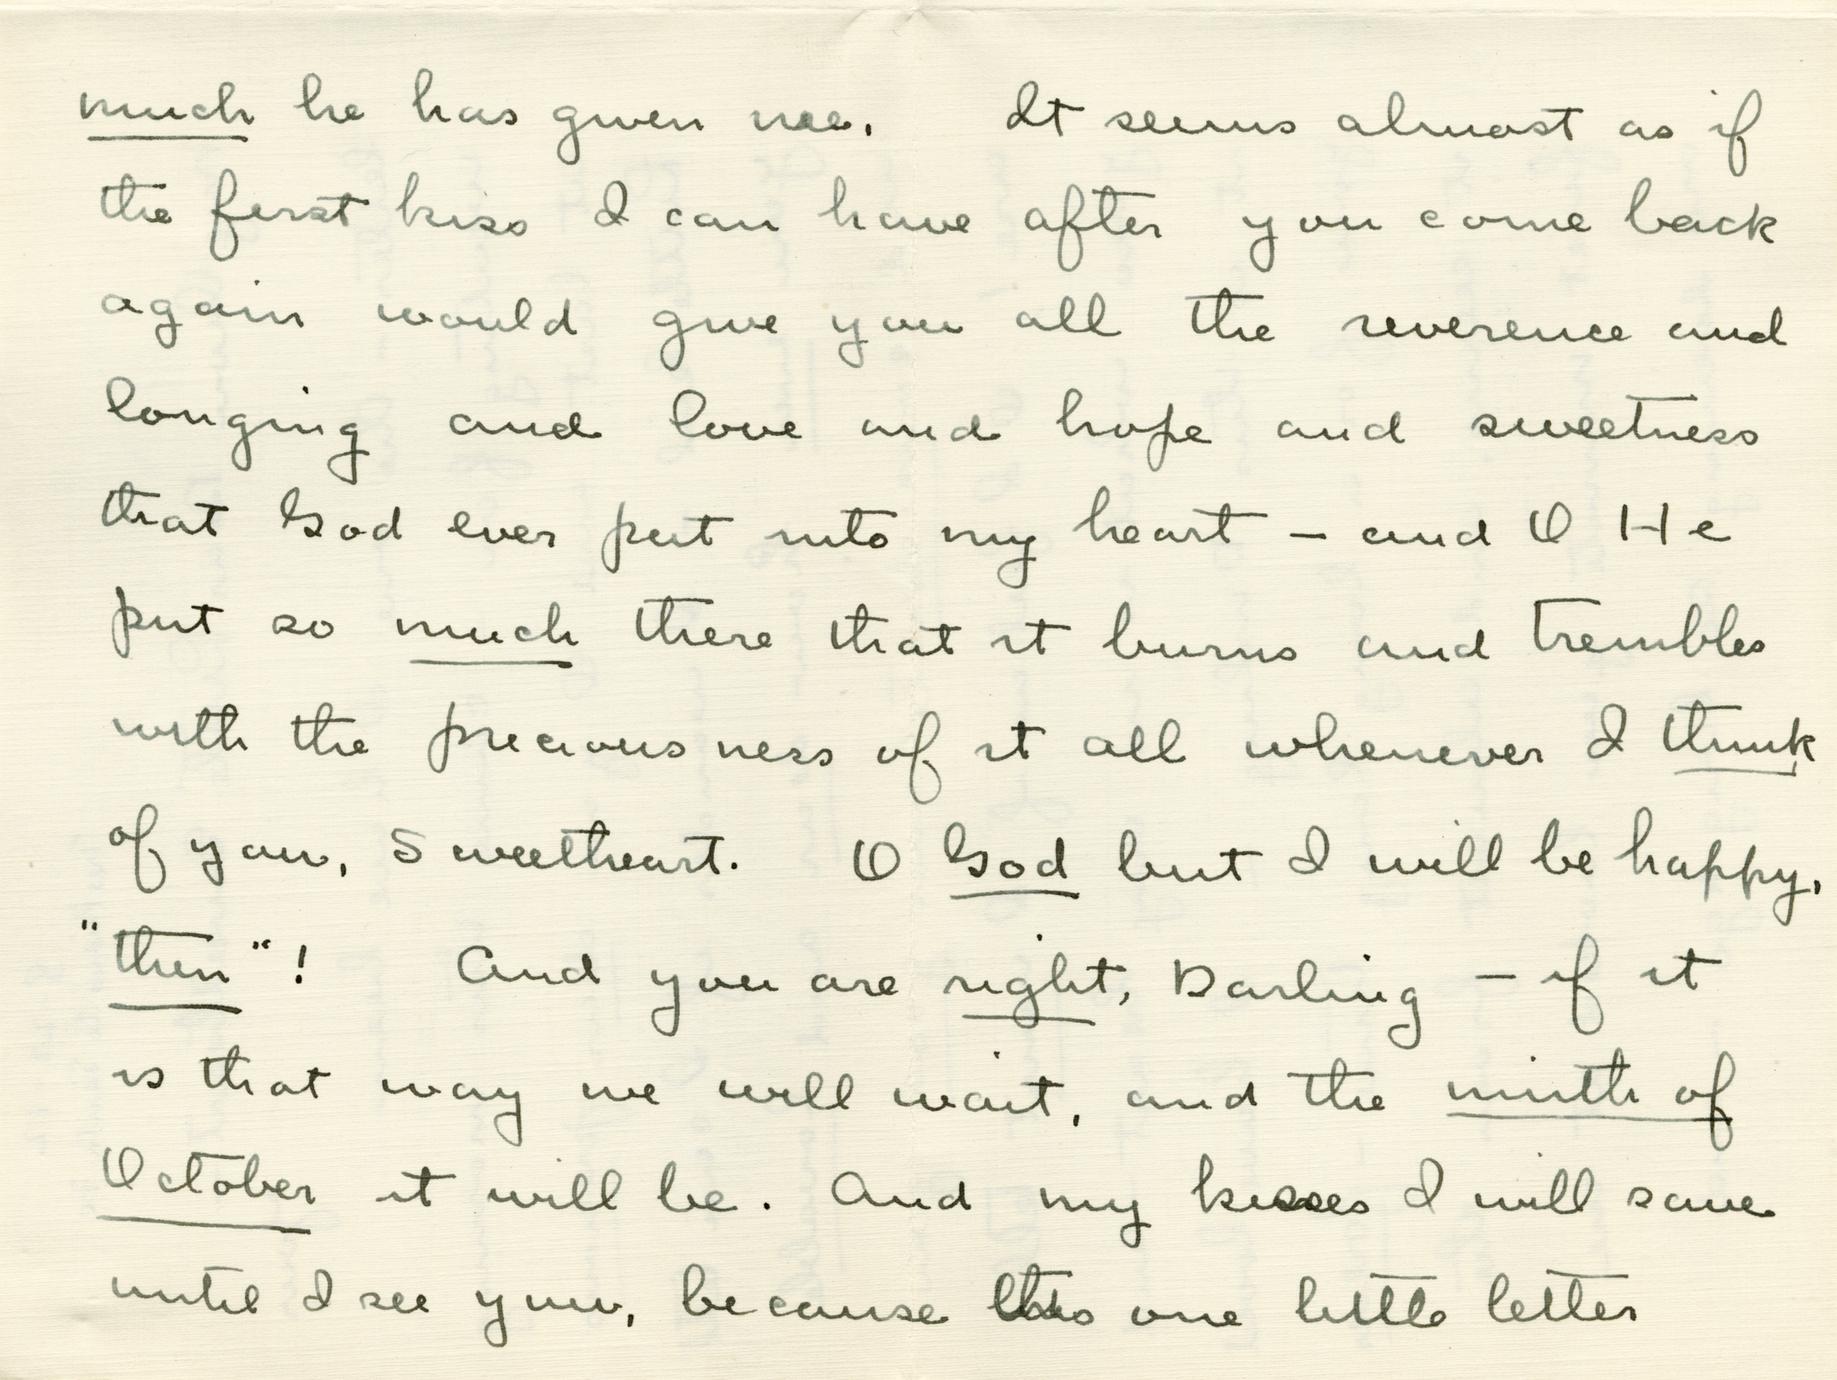 much he has given me. It seems almost as if
the first kiss I can have after you come back
again would give you all the reverence and
longing and love and hope and sweetness
that God ever put into my heart – and O He
put so much there that it burns and trembles
with the preciousness of it all whenever I think
of you, Sweetheart. O God but I will be happy,
"then"! And you are right, Darling – if it
is that way we will wait, and the ninth of
October it will be. And my kisses I will save
until I see you, because this one little letter